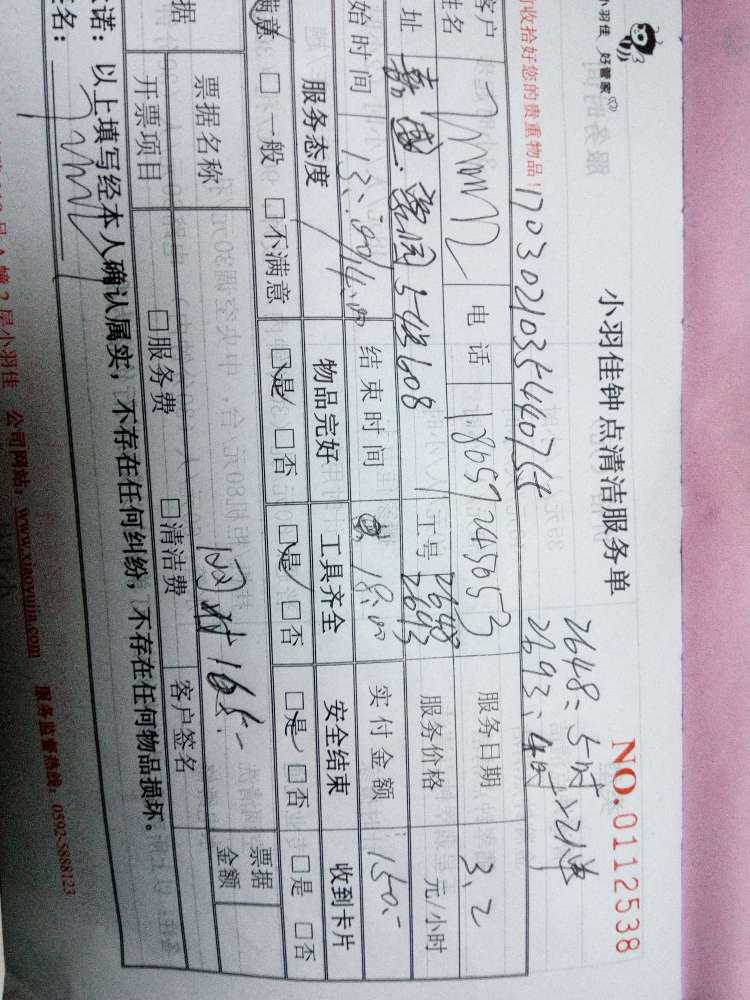 小羽佳 好管家
小羽佳钟点清洁服务单
NO.0112538
收拾好您的贵重物品！
17030210354407
2648：5时
2693：4时
客户
姓名
电话
18059245053
服务日期
3.2
址
工号
2648
2693
服务价格
元/小时
始时间
14:00
结束时间
18:00
实付金额
150.-
服务态度
物品完好
工具齐全
安全结束
收到卡片
满意 □一般 □不满意
□是 □否
□是 □否
□是 □否
□是 □否
据
票据名称
网付 165.-
票据
金额
开票项目
□服务费
□清洁费
客户签名
诺：以上填写经本人确认属实，不存在任何纠纷，不存在任何物品损坏。
签名：
2层小羽佳 公司网站：www.xiaoyujia.com 服务监督热线：0592-5888123